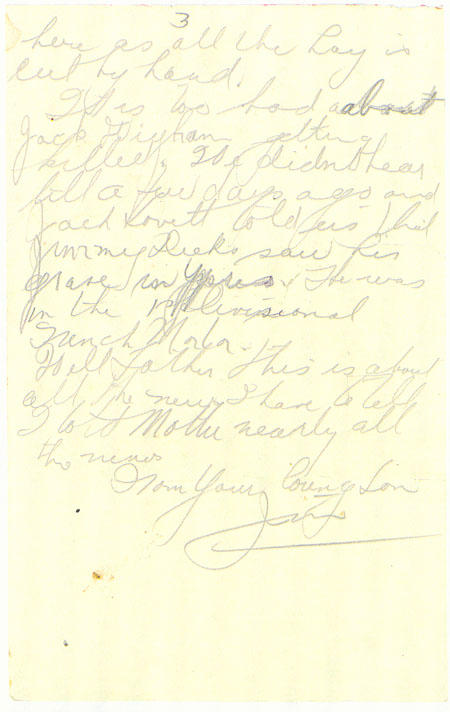 3
here as all the hay is
cut by hand.
It is too bad about
Jack getting
killed. We didn't hear
till a few days ago and
Jack Lovett told us that
Jimmy saw his
grave in Ypres. He was
in the 1st Divisional
Trench Mortar.
Well Father this is about
all the news I have to tell
I told Mother nearly all
the news
From Your loving Son